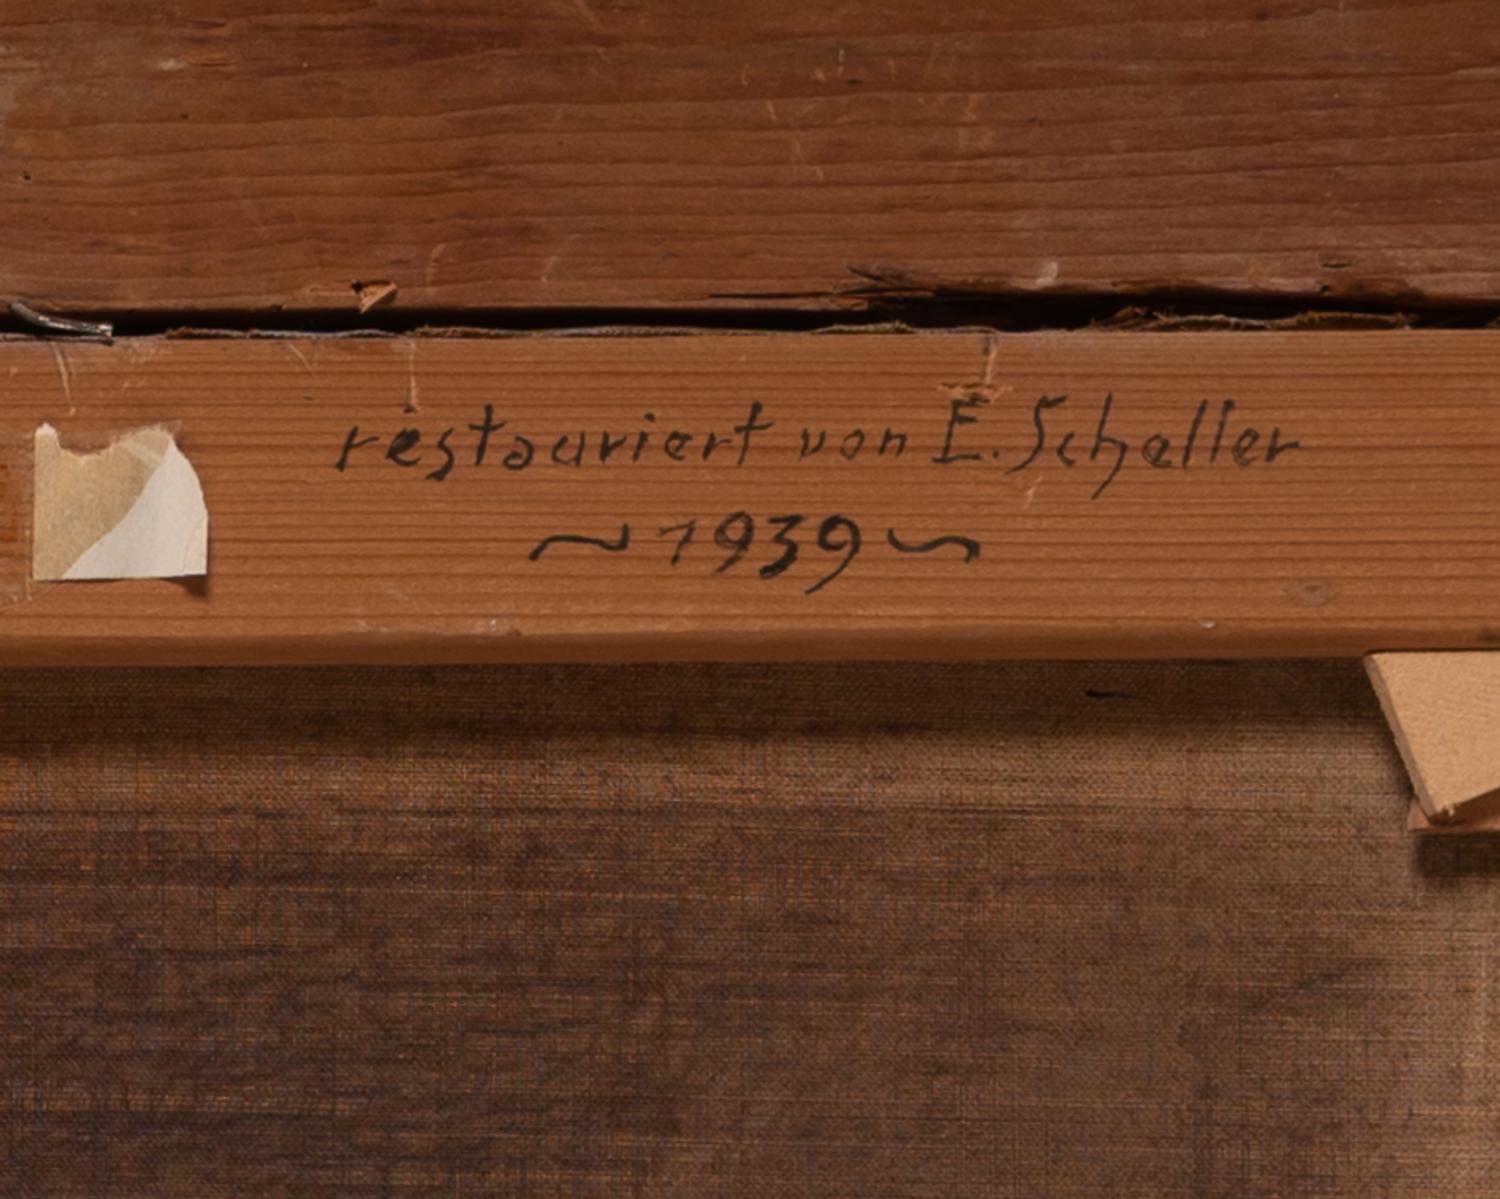 restauriert von E. Scheller
~ 1939 ~